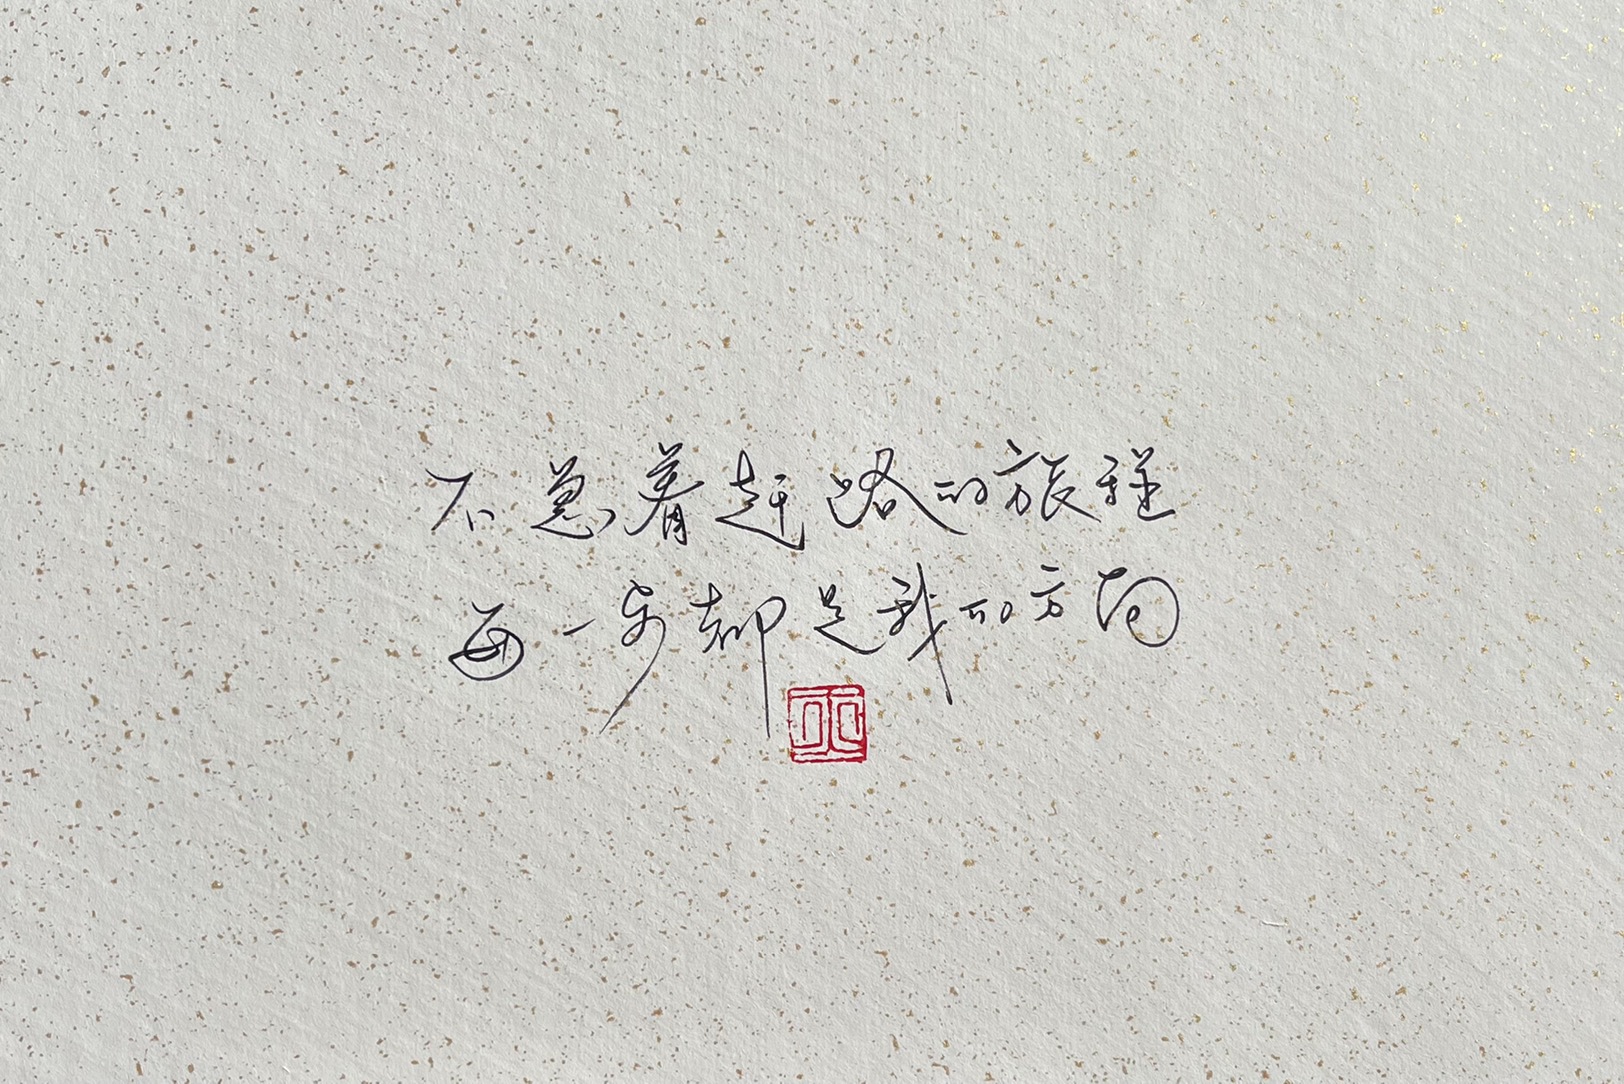 不急着赶路的旅程
每一步都是我的方向